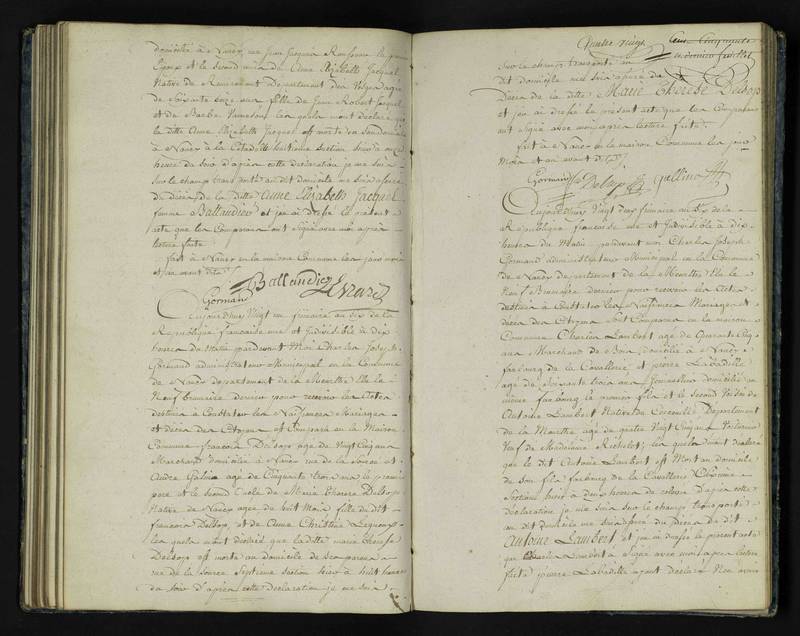 domicilié à Nancy rue Jean Jacques Rousseau le premier
Epoux et le second ami de Anne Elizabeth Jacquel
Native de Remiremont Departement des Vosges agée
de Soixante onze ans fille de Jean Robert Jacquel
et de Barbe lesquels mont declaré que
la ditte Anne Elizabeth Jacquel est morte en son domicile
à Nancy à la Citadelle huitieme Section hier à onze
heures du soir d'après cette declaration je me suis
sur le champ transporté au dit domicile me suis assuré
du Deces de la ditte Anne Elizabeth Jacquel
femme Ballandier et jen ai dressé le present
acte que les Comparans ont signé avec moi après
lecture faite
fait à Nancy en la maison Commune les jours mois
et an avant dits
Gormand Ballandier
Aujourdhuy Vingt un frimaire an dix de la
République francaise une et Indivisible à dix
heures du Matin pardevant Moi Charles Joseph
Gormand administrateur Municipal en la Commune
de Nancy departement de la Meurthe Elu le
Neuf brumaire dernier pour recevoir les Actes
destinés à Constater les Naissances Mariages
et décès des Citoyens est Comparu en la Maison
Commune francois Delsop age de Vingt Cinq ans
Marchand domicilié à Nancy rue de la Source et
Andre Galine agé de Cinquante trois ans le premier
pere et le second Oncle de Marie Therese Delsop
Native de Nancy agée de huit Mois fille du dit
francois Delsop, et de Anne Christine
les quels mont déclaré que la ditte marie therese
Delsop est morte au domicile de ses parens
rue de la Source Septieme section hier à huit heures
du soir d'après cette declaration je me suis
Quatre vingt
Cent Cinquante
et dernier feuillet
sur le champ transporté au
dit domicile me suis assuré du
Deces de la ditte Marie Therese Delsop
et jen ai dressé le present acte que les Comparans
ont signé avec moi après lecture faite.
fait à Nancy en la maison Commune les jour
Mois et an avant dits
Gormand Delsop Gallino
Aujourdhuy Vingt deux frimaire an dix de la
République francaise une et Indivisible à dix
heures du Matin pardevant moi Charles Joseph
Gormand administrateur Municipal en la Commune
de Nancy departement de la Meurthe Elu le
Neuf Brumaire dernier pour recevoir les Actes
destinés à Constater les Naissances Mariages et
deces des Citoyens est Comparu en la maison
Commune Charles Lambert agé de Quarante Cinq
ans Marchand de Bois domicilié à Nancy
faubourg de la Cavallerie et pierre Labadille
agé de Soixante trois ans domicilié au
même faubourg le premier fils et le second Voisin de
Antoine Lambert Natif de Departement
de la Meurthe agé de quatre Vingt Cinq ans
Veuf de Madelaine Richelet; les quels mont declaré
que le dit Antoine Lambert est Mort au domicile
de son fils faubourg de la Cavallerie
Section hier à deux heures de relevé D'après cette
declaration je me suis sur le champ transporté
au dit domicile me suis assuré du Deces du dit
Antoine Lambert et jen ai dressé le present acte
que Charles Lambert a signé avec moi après lecture
faite pierre Labadille ayant déclaré Ne savoir